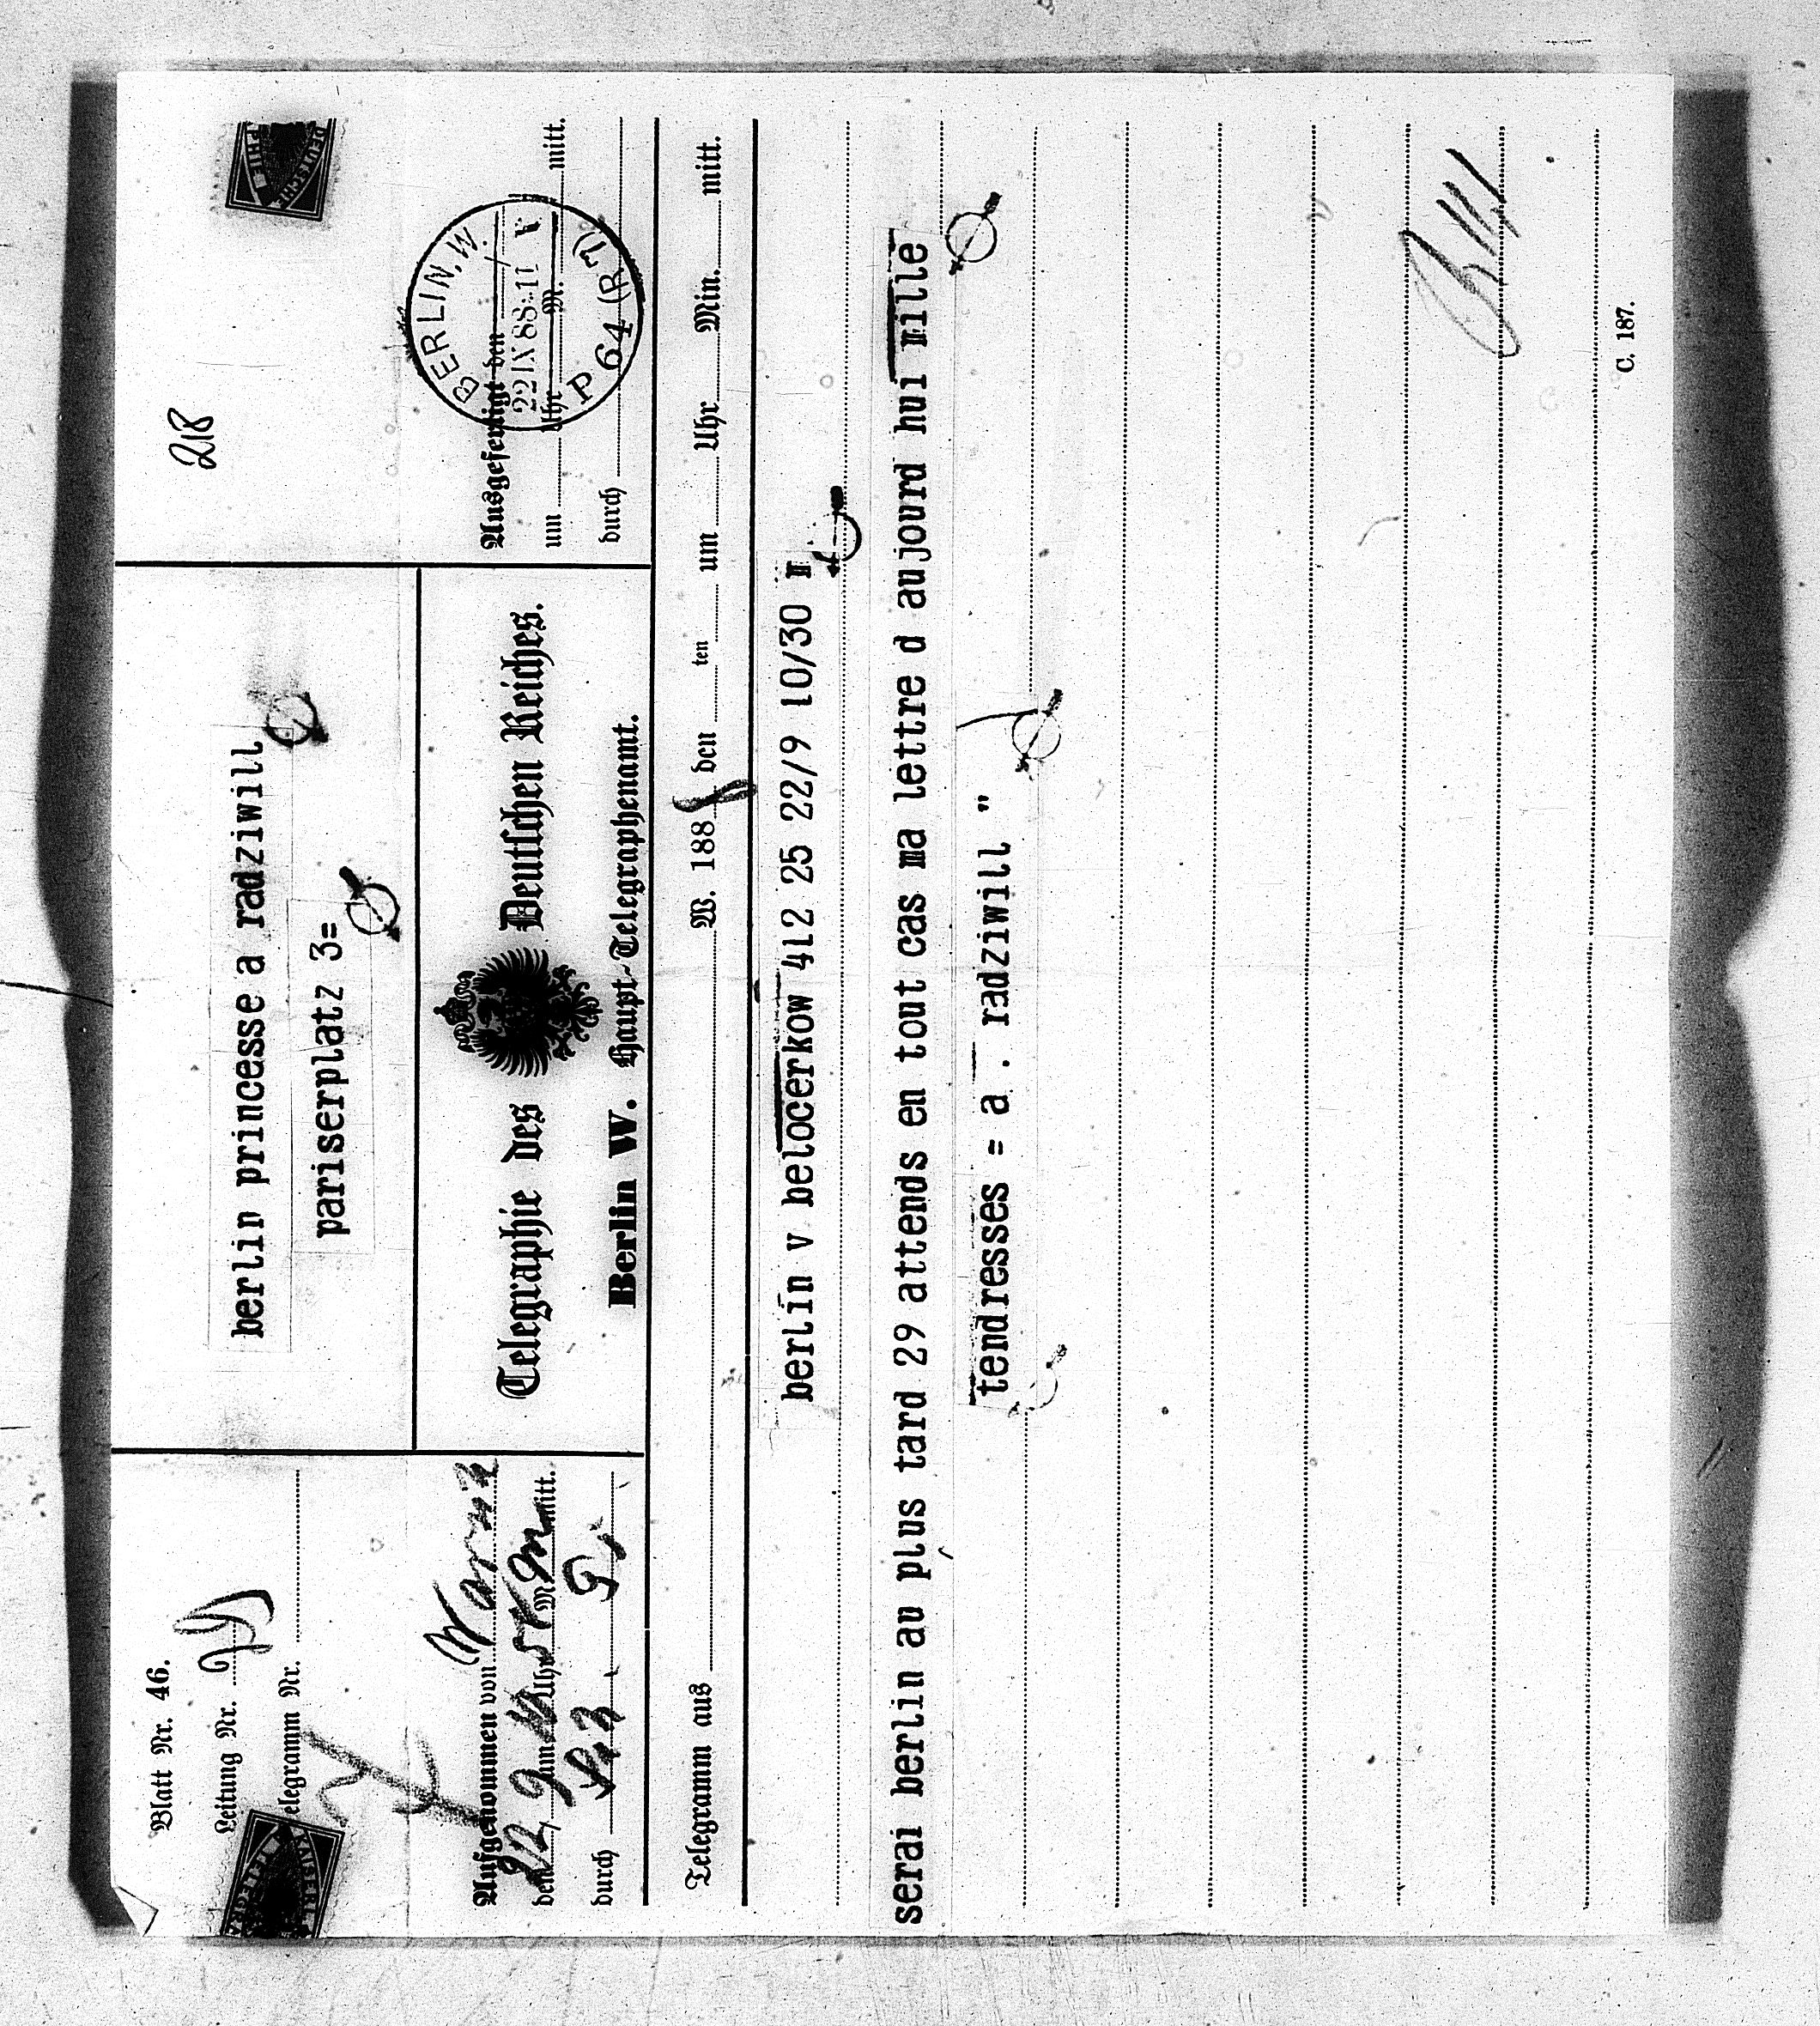 Blatt Nr. 46.
Leitung Nr.
Telegramm Nr.
berlin princesse a radziwill
pariserplatz 3=
218
Aufgenommen von
den 22/9 um Uhr M. mitt.
durch
Telegraphie des Deutschen Reiches.
Berlin W. Haupt-Telegraphenamt.
Ausgefertigt den
um Uhr M. mitt.
durch
BERLIN, W.
22 IX 88 11 V
P 64 (R 7)
Telegramm aus W. 1888 den ten um Uhr Min. mitt.
berlin v belocerkow 412 25 22/9 10/30 m
serai berlin au plus tard 29 attends en tout cas ma lettre d aujourd hui mille
tendresses = a . radziwill "
C. 187.